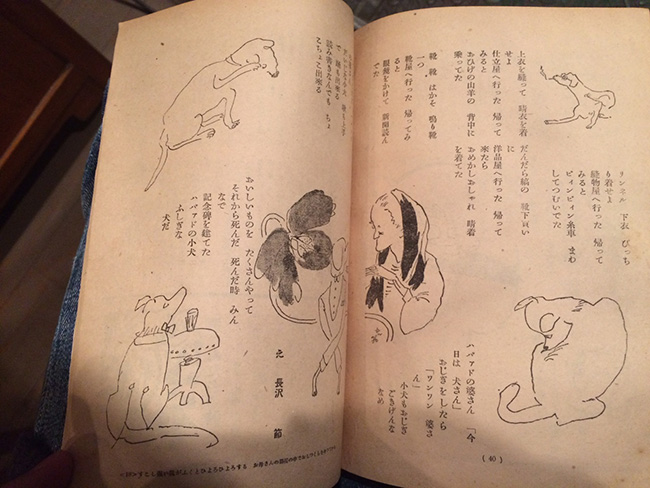 リンネル 下衣 ぴっち
り着せよ
縫物屋へ行った 帰って
みると
ピィンピィン糸車 まわ
してつむいでた
上衣を縫って 晴衣を着
せよ
仕立屋へ行った 帰って
みると
おひげの山羊の 背中に
乗ってた
だんだら縞の 靴下買い
に
洋品屋へ行った 帰って
来たら
おめかしおしゃれ 晴着
を着てた
靴 靴 はかそ 鳴り靴
一つ
靴屋へ行った 帰ってみ
ると
眼鏡をかけて 新聞読ん
でた
ハバァドの婆さん 「今
日は 犬さん」
おじぎをしたら
「ワンワン 婆さ
ん」
小犬もおじぎ
ごきげんな
なめ
(40)
で 踊も出来る
読み書きなんでも ちょ
こちょこ出来る
おいしいものを たくさんやって
それから死んだ 死んだ時 みん
なで
記念碑を建てた
ハバァドの小犬
ふしぎな
犬だ
え 長沢 節